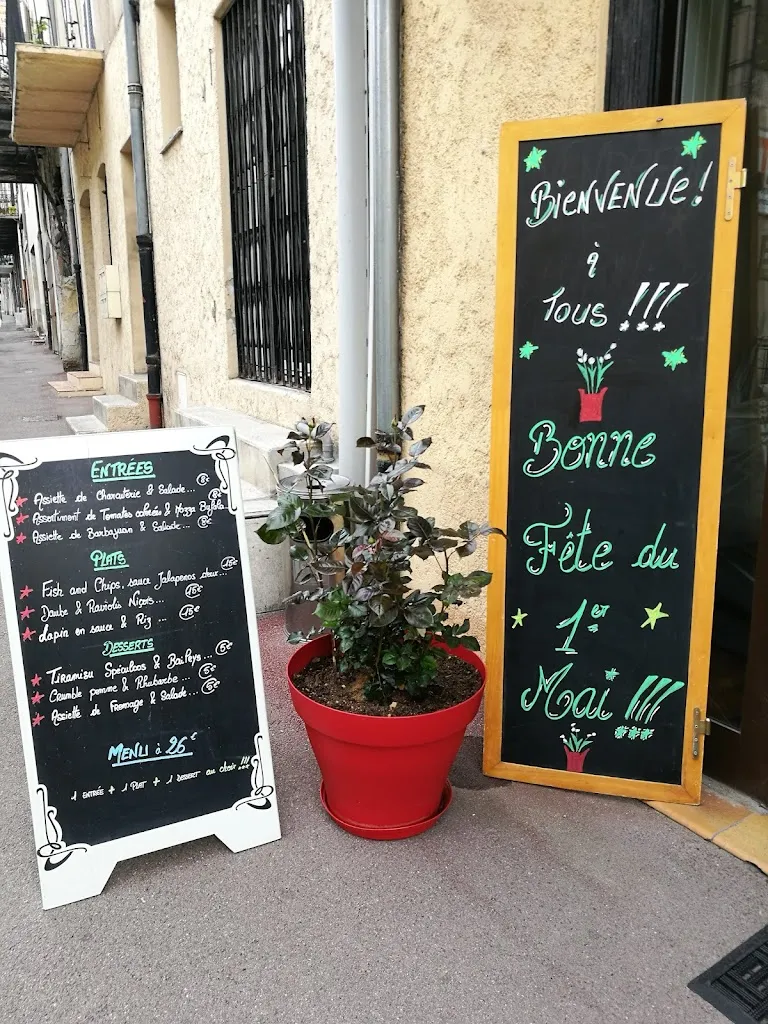 ENTRÉES
Assiette de Charcuterie & Salade... 8€
Assortiment de Tomates colorées & Mozza Bufala 8€
Assiette de Barbajuan & Salade... 8€
PLATS
Fish and Chips, sauce Jalapenos doux... 15€
Daube & Raviolis Niçois... 15€
Lapin en sauce & Riz... 15€
DESSERTS
Tiramisu Spéculoos & Baileys... 6€
Crumble pomme & Rhubarbe... 6€
Assiette de Fromage & Salade... 6€
MENU à 26€
1 ENTRÉE + 1 PLAT + 1 DESSERT au choix !!!
BIENVENUE!
à
Tous !!!
Bonne
Fête du
1er
Mai !!!